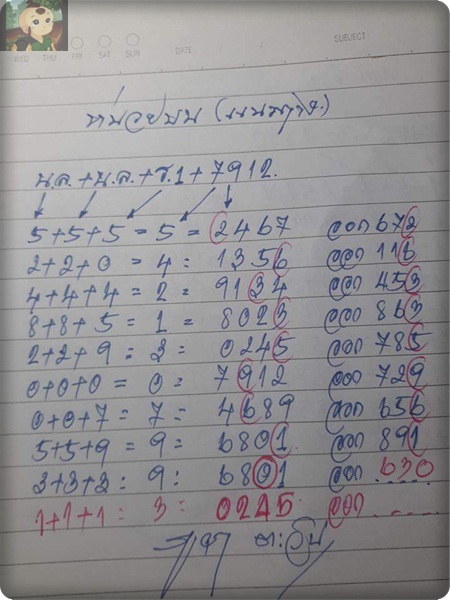 WED THU FRI SAT SUN DATE SUBJECT
หน่วยบน (แนวทาง)
น.ล.+น.ล.+ร.1+7912.
5+5+5 = 5 = 2467 ออก 672
2+2+0 = 4 = 1356 ออก 116
4+4+4 = 2 = 9134 ออก 453
8+8+5 = 1 = 8023 ออก 863
2+2+9 = 3 = 0245 ออก 785
0+0+0 = 0 = 7912 ออก 729
0+0+7 = 7 = 4689 ออก 656
5+5+9 = 9 = 6801 ออก 891
3+3+3 = 9 : 6801 ออก 630
1+1+1 : 3 = 0245 ออก ....